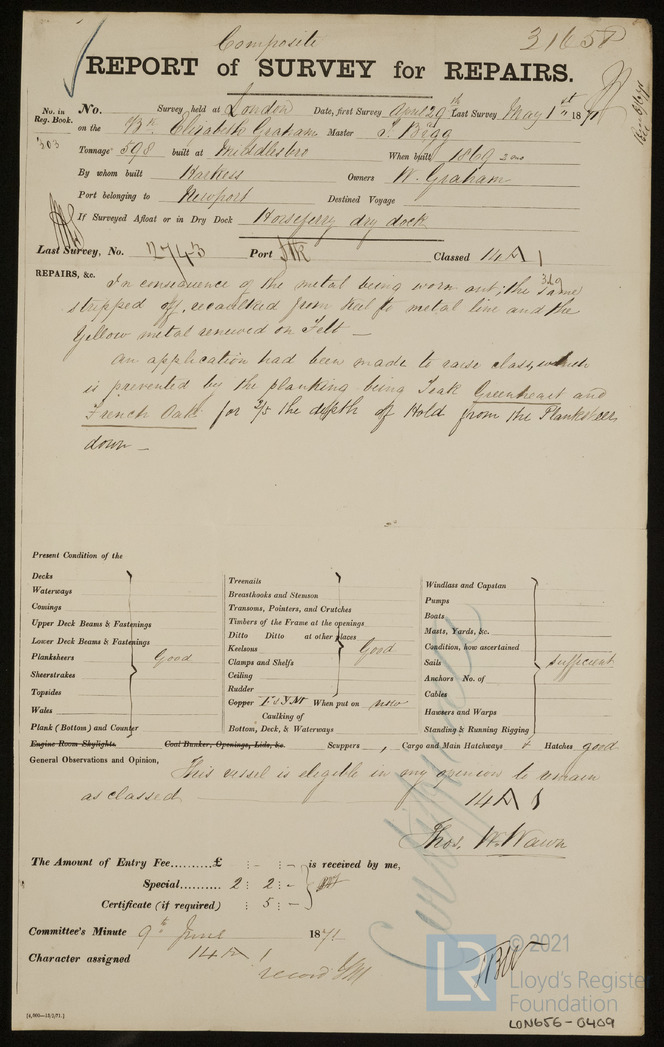 Composite
31658
REPORT of SURVEY for REPAIRS.
No. in Reg. Book.
303
No. Survey held at London Date, first Survey April 29th Last Survey May 1st 1871
on the Bk Elizabeth Graham Master J. Begg
Tonnage 598 built at Middlesbro When built 1869 2mo
By whom built Harkess Owners W. Graham
Port belonging to Newport Destined Voyage
If Surveyed Afloat or in Dry Dock Horseferry dry dock
Last Survey, No. 12743 Port Classed 14 A 1
REPAIRS, &c.
In consequence of the metal being worn out; the same
stripped off, recaulked from keel to metal line and the
Yellow metal renewed on Felt —
An application had been made to raise class, which
is prevented by the planking being Teak Greenheart and
French Oak for 2/5 the depth of Hold from the Planksheers
down —
Present Condition of the
Decks
Waterways
Comings
Upper Deck Beams & Fastenings
Lower Deck Beams & Fastenings
Planksheers Good
Sheerstrakes
Topsides
Wales
Plank (Bottom) and Counter
Treenails
Breasthooks and Stemson
Transoms, Pointers, and Crutches
Timbers of the Frame at the openings
Ditto Ditto at other places
Keelsons Good
Clamps and Shelfs
Ceiling
Rudder
Copper F & YM When put on now
Caulking of
Bottom, Deck, & Waterways
Windlass and Capstan
Pumps
Boats
Masts, Yards, &c.
Condition, how ascertained
Sails sufficient
Anchors No. of
Cables
Hawsers and Warps
Standing & Running Rigging
Engine Room Skylights Coal Bunker, Openings, Lids, &c. Scuppers , Cargo and Main Hatchways + Hatches good
General Observations and Opinion, This vessel is eligible in my opinion to remain
as classed 14 A 1
Thos. W. Wawn
The Amount of Entry Fee..........£ : - : - is received by me,
Special.......... 2 : 2 : -
Certificate (if required) : 5 : -
Certificate
Committee's Minute 9th June 1871
Character assigned 14 A 1
record YM
[4,000—13/2/71.]
© 2021
LR
Lloyd's Register
Foundation
LON656-0409